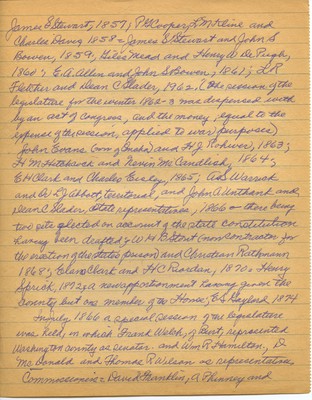 James S Stewart, 1857; P G Cooper, L M Kline and
Charles Davis 1858 = James S Stewart and John S
Bowen, 1859, Giles Mead and Henry W De Puy,
1860; E. A. Allen and John S Bowen, 1861; L R
Fletcher and Dean C Slader, 1962. (The session of the
legislature for the winter 1862-3 was dispensed with
by an act of Congress, and the money, equal to the
expense of the session, applied to war purposes)
John Evans (now of Omaha) and H. J. Rohwer, 1863;
H M Hitchcock and Nevin McCandlish, 1864;
E H Clark and Charles Eisley, 1865; A S Warrick
and Dr L J Abbott, territorial, and John A Unthank and
Dean C Slader, State representatives, 1866 = there being
two sets elected on account of the state constitution
having been drafted; W H B Stout (now contractor for
the erection of the States prison) and Christian Rathmann
1868; Elam Clark and H C Riordan, 1870 = Henry
Sprick, 1872, a new apportionment having given the
County but one member of the House; E S Gaylord 1874
In July 1866 a special session of the legislature
was held, in which Frank Welch, of Burt, represented
Washington county as senator. and Wm R Hamilton, D
McDonald and Thomas R Wilson as representatives
Commissioners = David Franklin, A Phinney and